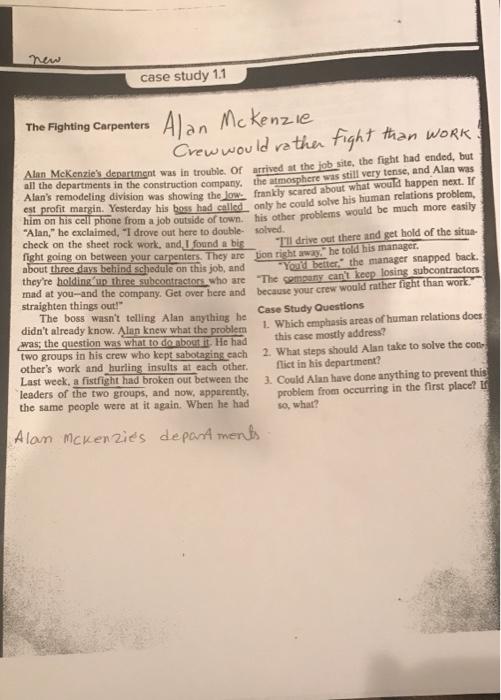 new
case study 1.1
The Fighting Carpenters
Alan McKenzie
Crew would rather fight than WORK!
Alan McKenzie's department was in trouble. Of
all the departments in the construction company,
Alan's remodeling division was showing the low-
est profit margin. Yesterday his boss had called
him on his cell phone from a job outside of town.
"Alan," he exclaimed, "I drove out here to double-
check on the sheet rock work, and I found a big
fight going on between your carpenters. They are
about three days behind schedule on this job, and
they're holding up three subcontractors who are
mad at you—and the company. Get over here and
straighten things out!"
The boss wasn't telling Alan anything he
didn't already know. Alan knew what the problem
was; the question was what to do about it. He had
two groups in his crew who kept sabotaging each
other's work and hurling insults at each other.
Last week, a fistfight had broken out between the
leaders of the two groups, and now, apparently,
the same people were at it again. When he had
arrived at the job site, the fight had ended, but
the atmosphere was still very tense, and Alan was
frankly scared about what would happen next. If
only he could solve his human relations problem,
his other problems would be much more easily
solved.
"I'll drive out there and get hold of the situa-
tion right away," he told his manager.
"You'd better," the manager snapped back.
"The company can't keep losing subcontractors
because your crew would rather fight than work."
Case Study Questions
1. Which emphasis areas of human relations does
this case mostly address?
2. What steps should Alan take to solve the con-
flict in his department?
3. Could Alan have done anything to prevent this
problem from occurring in the first place? If
so, what?
Alan McKenzies departments